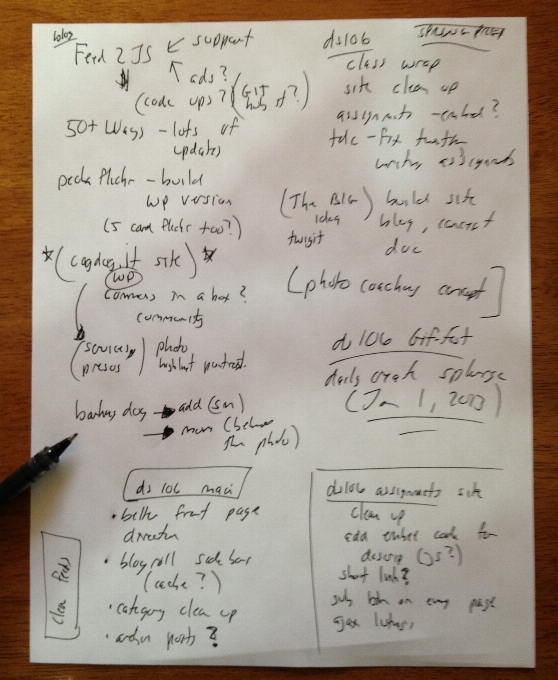 blog
Feed 2 JS support
ads?
(code ups?) (GIT hub it?)
50+ Ways - lots of
updates
pecha flickr - build
WP version
(5 card flickr too?)
(cogdog.it site)
WP
commons in a box?
community
(services, presos) photo
highlight portrait.
barking dog → add (sm)
→ more (behind
the photo)
ds106 main
• better front page
direction
• blogroll side bar
(cache?)
• category clean up
• archive posts?
clean feeds
ds106 SPRING PREP
class wrap
site clean up
assignments - embed?
tdc - fix twitter
writing assignments
(The Big idea) build site
twigit blog, concept
doc
[photo coaching concept]
ds106 Gif fest
daily create splurge
(Jan 1, 2013)
ds106 assignments site
clean up
add embed code for
descrip (js?)
short link?
sub btn on every page
ajax